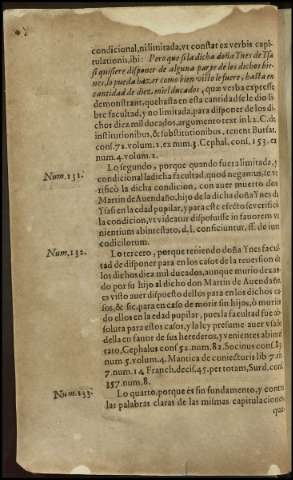 condicional, ni limitada, vt constat ex verbis capi-
tulationis, ibi: Pero que si la dicha doña Ynes de Ysa
si quisiere disponer de alguna parte de los dichos bie-
nes, lo pueda hazer como bien visto le fuere, hasta en
cantidad de diez mil ducados, quæ verba expressè
demonstrant, que hasta en esta cantidad se le dio li-
bre facultad, y no limitada, para disponer de los di-
chos diez mil ducados, argumento text in l. 2. C. de
institutionibus, & substitutionibus, tenent Bursat.
conf. 72. volum. 1. ex num. 3. Cephal. conf. 153. ex
num. 4. volum. 2.
Num. 131.
Lo segundo, porque quando fuera limitada, y
condicional la dicha facultad, quod negamus, se ve-
rificò la dicha condicion, con auer muerto don
Martin de Auendaño, hijo de la dicha doña Ynes de
Ysasi en la edad pupilar, y para este efecto se verificò
la condicion, vt videatur disposuisse in fauorem ve-
nientium ab intestato, d. l. conficiuntur, ff. de iure
codicilorum.
Num. 132.
Lo tercero, porque teniendo doña Ynes facul-
tad de disponer para en los casos de la reuersion de
los dichos diez mil ducados, aunque murio dexan-
do por su hijo al dicho don Martin de Auendaño,
es visto auer dispuesto dellos para en los dichos ca-
sos, & sic, para en caso de morir sin hijos, ò murien-
do ellos en la edad pupilar, pues la facultad fue ab-
soluta para estos casos, y la ley presume auer vsado
della en fauor de sus herederos, y venientes ab intes-
tato, Cephalus conf 52. num. 82. Socinus conf.
num 5. volum. 4. Mantica de coniecturis lib 7. tit
7. num. 14 Franch. decis. 45. per totam, Surd. conf.
357. num. 8.
Num. 133.
Lo quarto, porque es sin fundamento, y contra
las palabras claras de las mismas capitulaciones
que